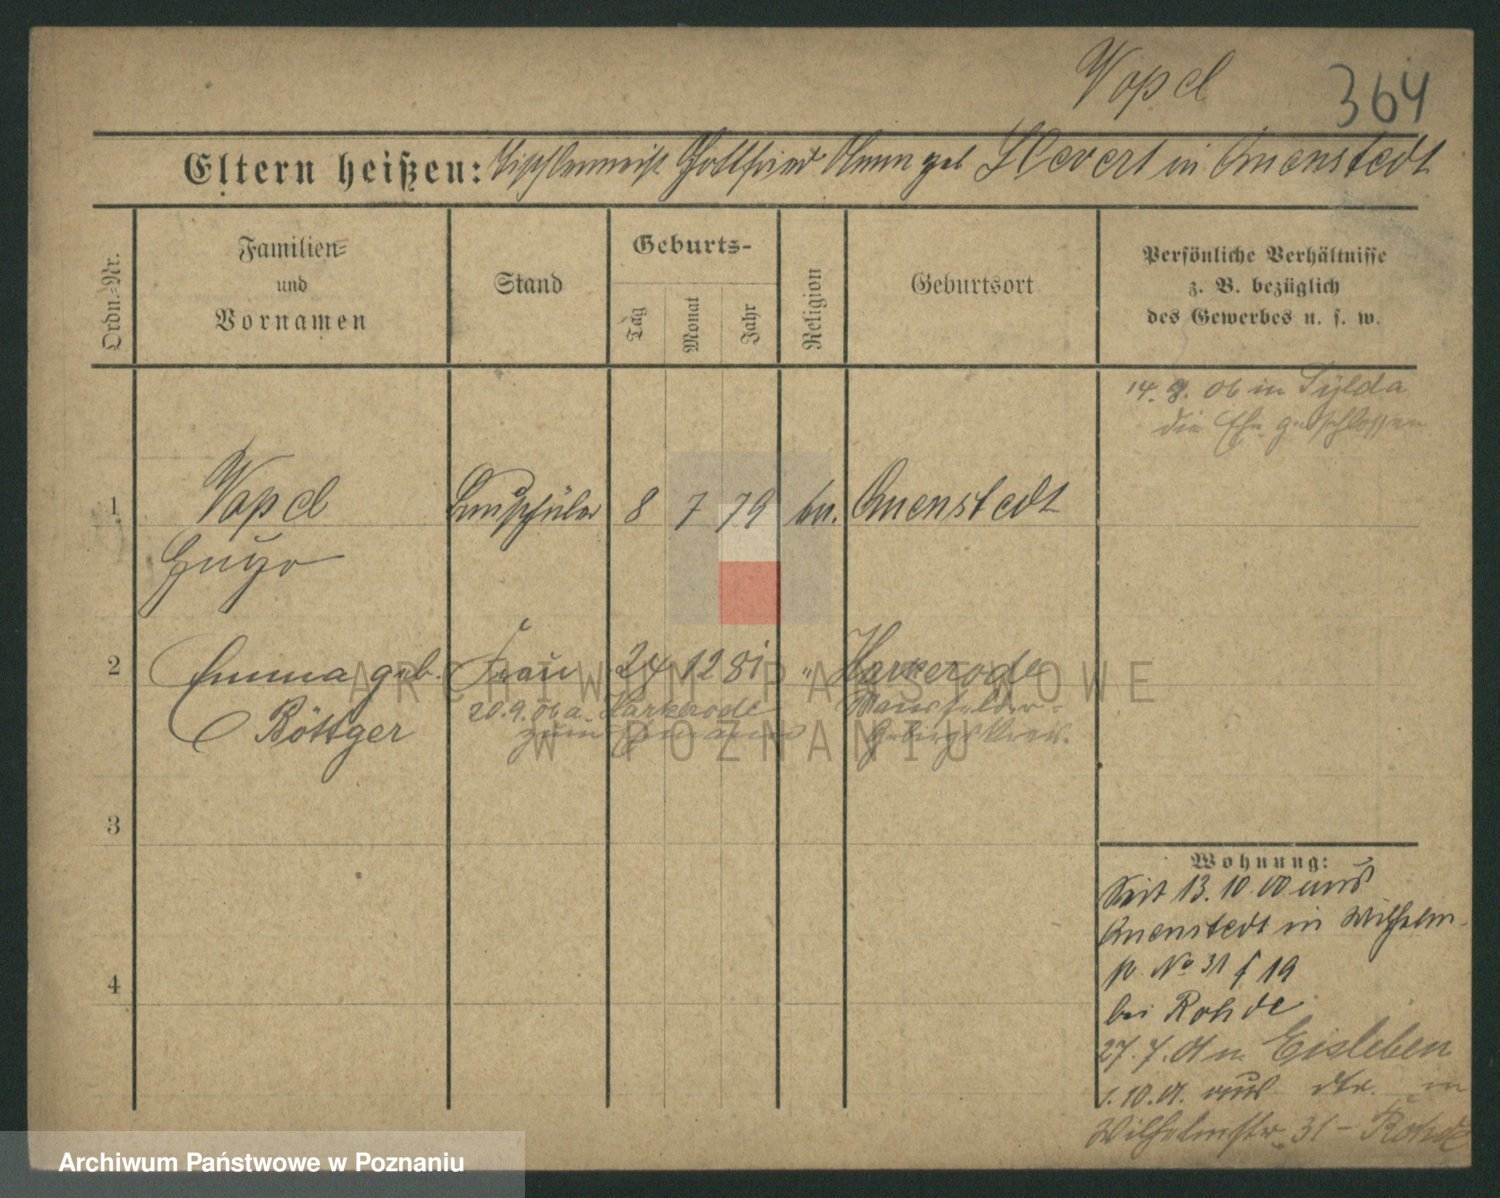 Vopel
364
Eltern heißen: Tischlermeist. Gottfried geb. Hevert in Quenstedt
Ordn.-Nr.
Familien-
und
Vornamen
Stand
Geburts-
Tag
Monat
Jahr
Religion
Geburtsort
Persönliche Verhältnisse
z. B. bezüglich
des Gewerbes u. s. w.
14. 9. 06 in Sylda
die Ehe geschlossen
1
Vopel
Hugo
Bauschüler
8
7
79
ev.
Quenstedt
2
Emma geb.
Böttger
Frau
24
12
81
"
Harkerode
Mansfelder-
Gebirgskreis.
20.9.06 a. Harkerode
zum Ehemann
3
4
Wohnung:
Seit 13.10.00 aus
Quenstedt in Wilhelm-
No 31 f 19
bei Rohde
27.7.01 n. Eisleben
1.10.01. aus dto. in
Wilhelmstr. 31 - Rohde
ARCHIWUM PAŃSTWOWE
W POZNANIU
Archiwum Państwowe w Poznaniu